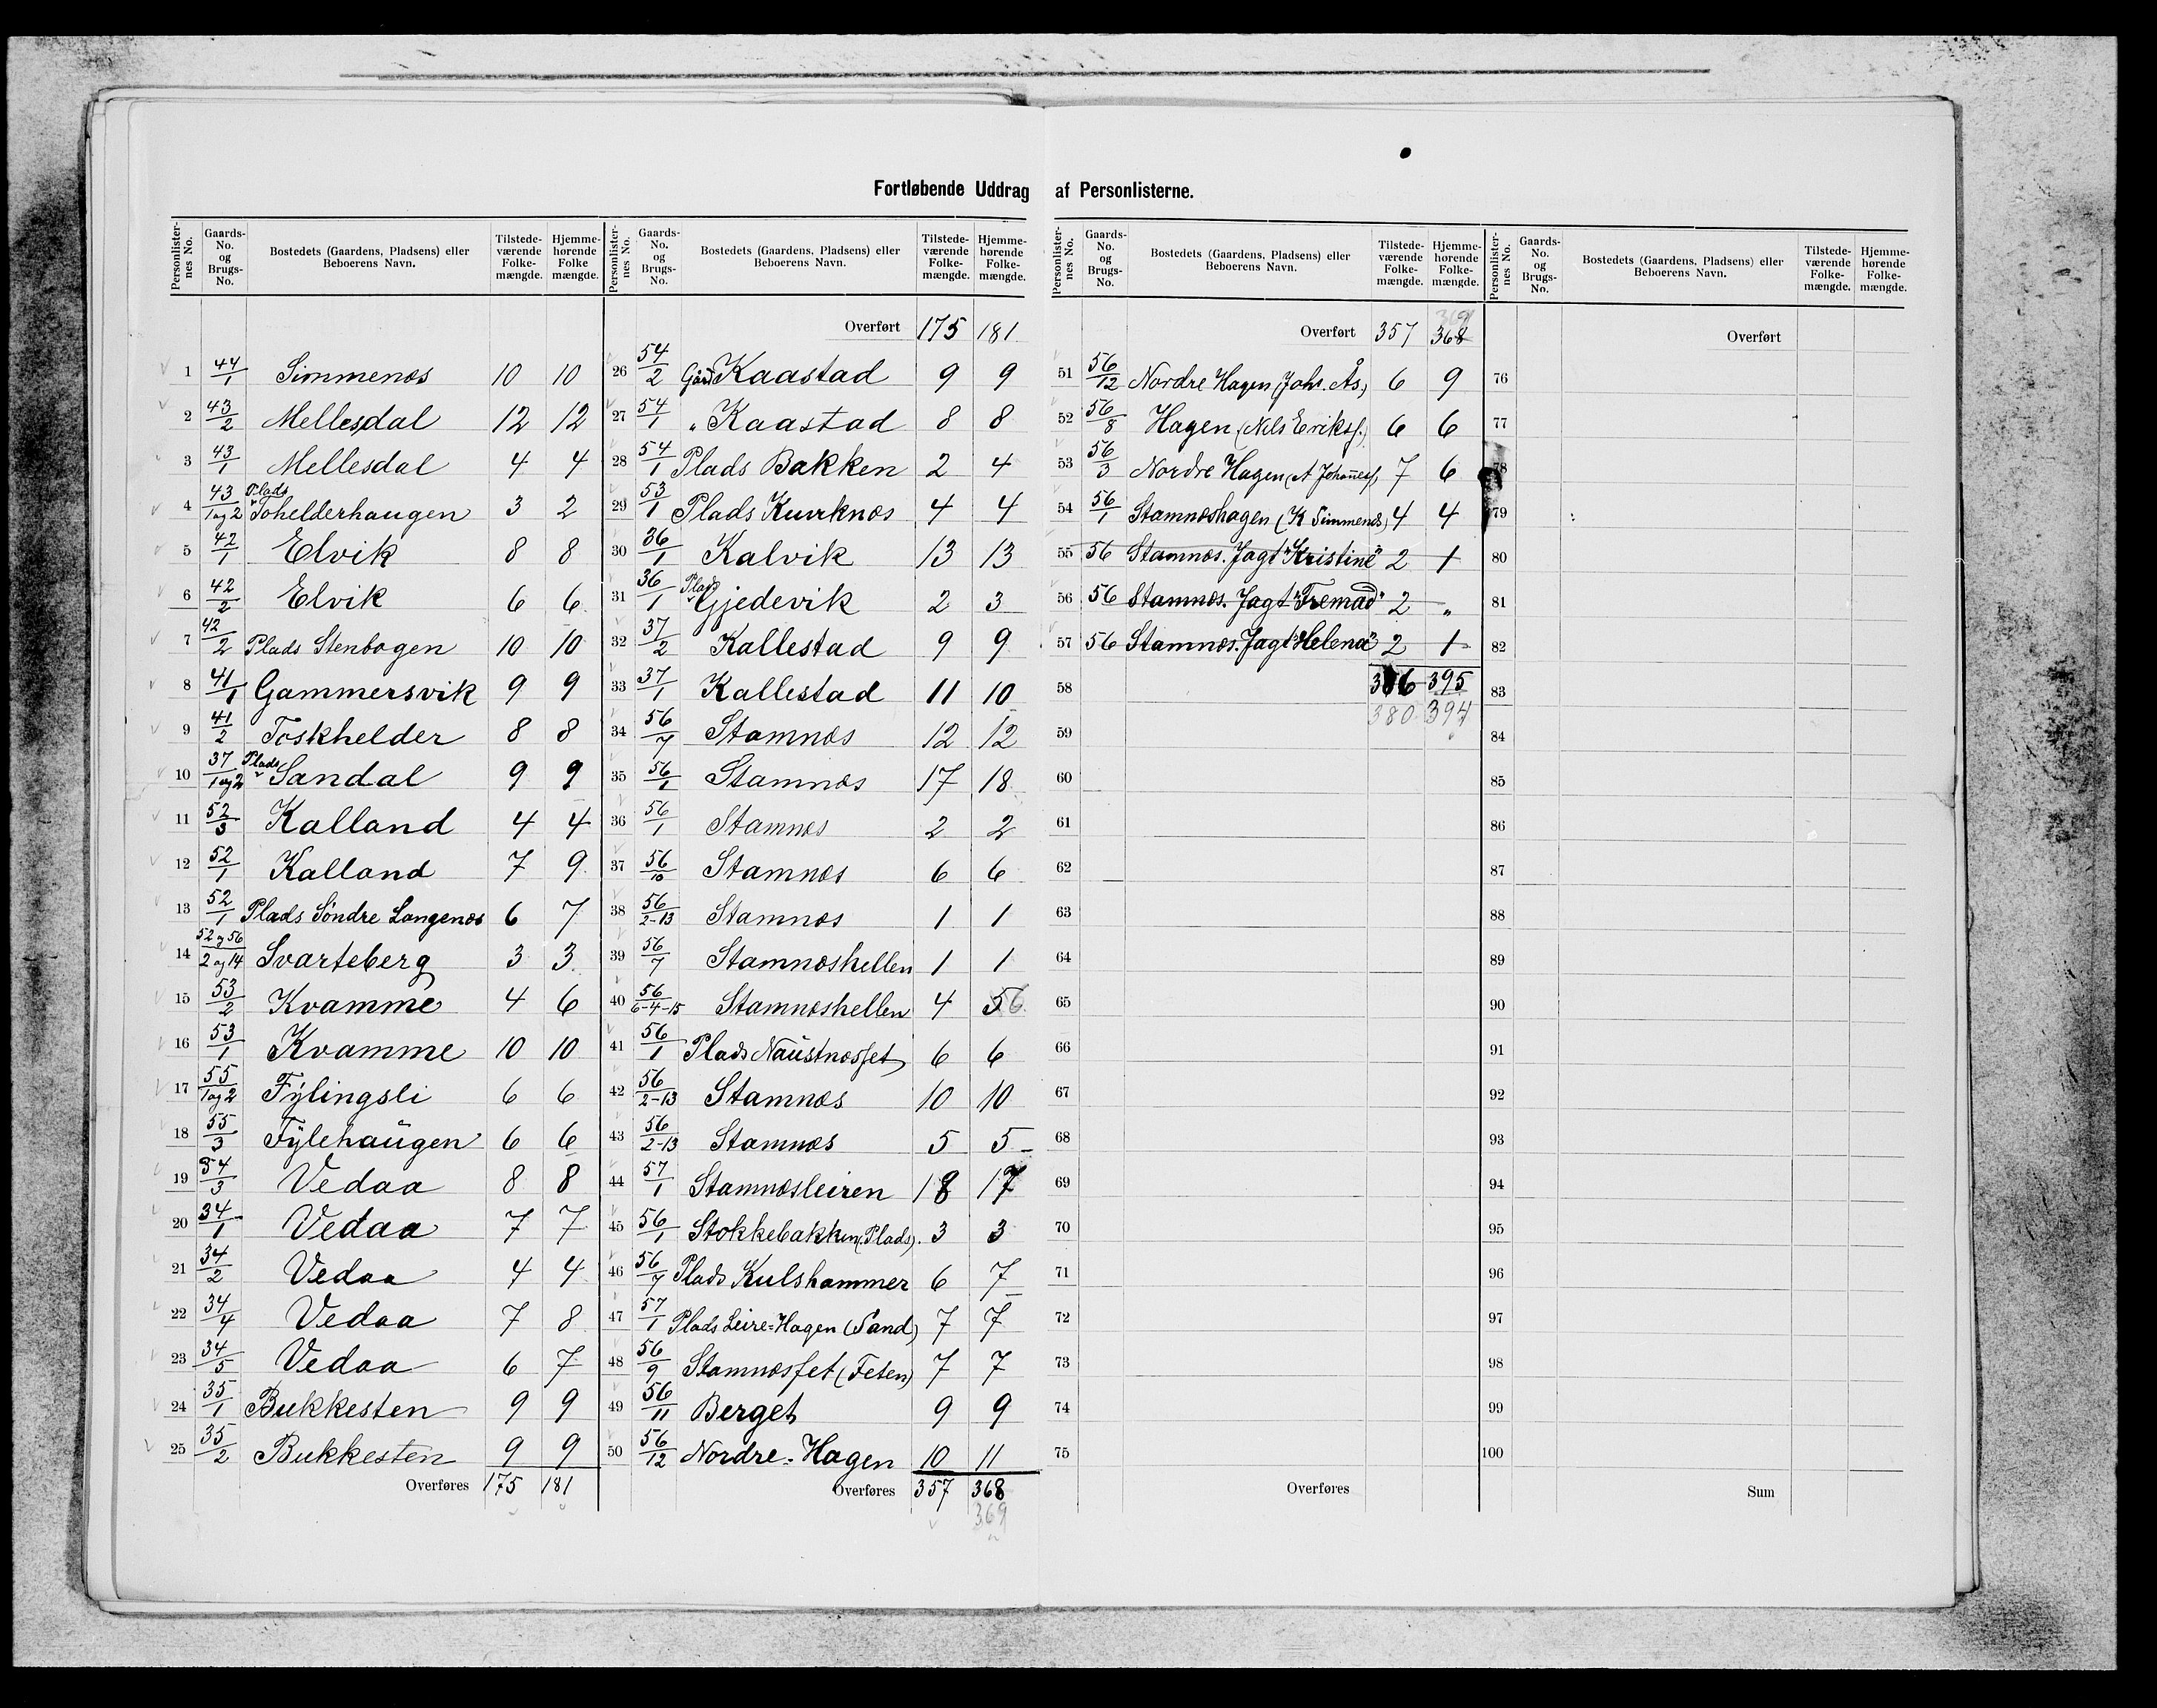 Fortløbende Uddrag af Personlisterne.
Personlister-nes No. | Gaards-No. og Brugs-No. | Bostedets (Gaardens, Pladsens) eller Beboerens Navn. | Tilstede-værende Folke-mængde. | Hjemme-hørende Folke mængde.
1 44/1 Simmenæs 10 10
2 43/2 Mellesdal 12 12
3 43/1 Mellesdal 4 4
4 43/1og2 Plads Tohelderhaugen 3 2
5 42/1 Elvik 8 8
6 42/2 Elvik 6 6
7 42/2 Plads Stenbogen 10 10
8 41/1 Gammersvik 9 9
9 41/2 Toskhelder 8 8
10 37/1og2 Plads Sandal 9 9
11 52/3 Kalland 4 4
12 52/1 Kalland 7 9
13 52/1 Plads Söndre Langenæs 6 7
14 52og56/2og14 Svarteberg 3 3
15 53/2 Kvamme 4 6
16 53/1 Kvamme 10 10
17 55/1og2 Fylingsli 6 6
18 55/3 Fylehaugen 6 6
19 34/3 Vedaa 8 8
20 34/1 Vedaa 7 7
21 34/2 Vedaa 4 4
22 34/4 Vedaa 7 8
23 34/5 Vedaa 6 7
24 35/1 Bukkesten 9 9
25 35/2 Bukkesten 9 9
Overføres 175 181
Personlister-nes No. | Gaards-No. og Brugs-No. | Bostedets (Gaardens, Pladsens) eller Beboerens Navn. | Tilstede-værende Folke-mængde. | Hjemme-hørende Folke-mængde.
Overført 175 181
26 54/2 Gård Kaastad 9 9
27 54/1 " Kaastad 8 8
28 54/1 Plads Bakken 2 4
29 53/1 Plads Kvirknæs 4 4
30 36/1 Kalvik 13 13
31 36/1 Plads Gjedevik 2 3
32 37/2 Kallestad 9 9
33 37/1 Kallestad 11 10
34 56/7 Stamnæs 12 12
35 56/1 Stamnæs 17 18
36 56/1 Stamnæs 2 2
37 56/10 Stamnæs 6 6
38 56/2-13 Stamnæs 1 1
39 56/7 Stamnæshellen 1 1
40 56/6-4-15 Stamnæshellen 4 5 6
41 56/1 Plads Naustnæsfet 6 6
42 56/2-13 Stamnæs 10 10
43 56/2-13 Stamnæs 5 5
44 57/1 Stamnæsleiren 18 17
45 56/1 Stokkebakken (Plads). 3 3
46 56/7 Plads Kulshammer 6 7
47 57/1 Plads Leire=Hagen (Sand) 7 7
48 56/9 Stamnæsfet (Feten) 7 7
49 56/11 Berget 9 9
50 56/12 Nordre=Hagen 10 11
Overføres 357 368
369
Personlister-nes No. | Gaards-No. og Brugs-No. | Bostedets (Gaardens, Pladsens) eller Beboerens Navn. | Tilstede-værende Folke-mængde. | Hjemme-hørende Folke-mængde.
369
Overført 357 368
51 56/12 Nordre Hagen (Johs. Ås) 6 9
52 56/8 Hagen (Nils Eriks.) 6 6
53 56/3 Nordre Hagen (A Johannes) 7 6
54 56/1 Stamnæshagen (K Simmenæs) 4 4
55 56 Stamnæs. Jagt "Kristine" 2 1
56 56 Stamnæs. Jagt "Fremad" 2 "
57 56 Stamnæs. Jagt "Helena" 2 1
58 386 395
380 394
59
60
61
62
63
64
65
66
67
68
69
70
71
72
73
74
75
Overføres
Personlister-nes No. | Gaards-No. og Brugs-No. | Bostedets (Gaardens, Pladsens) eller Beboerens Navn. | Tilstede-værende Folke-mængde. | Hjemme-hørende Folke-mængde.
Overført
76
77
78
79
80
81
82
83
84
85
86
87
88
89
90
91
92
93
94
95
96
97
98
99
100
Sum